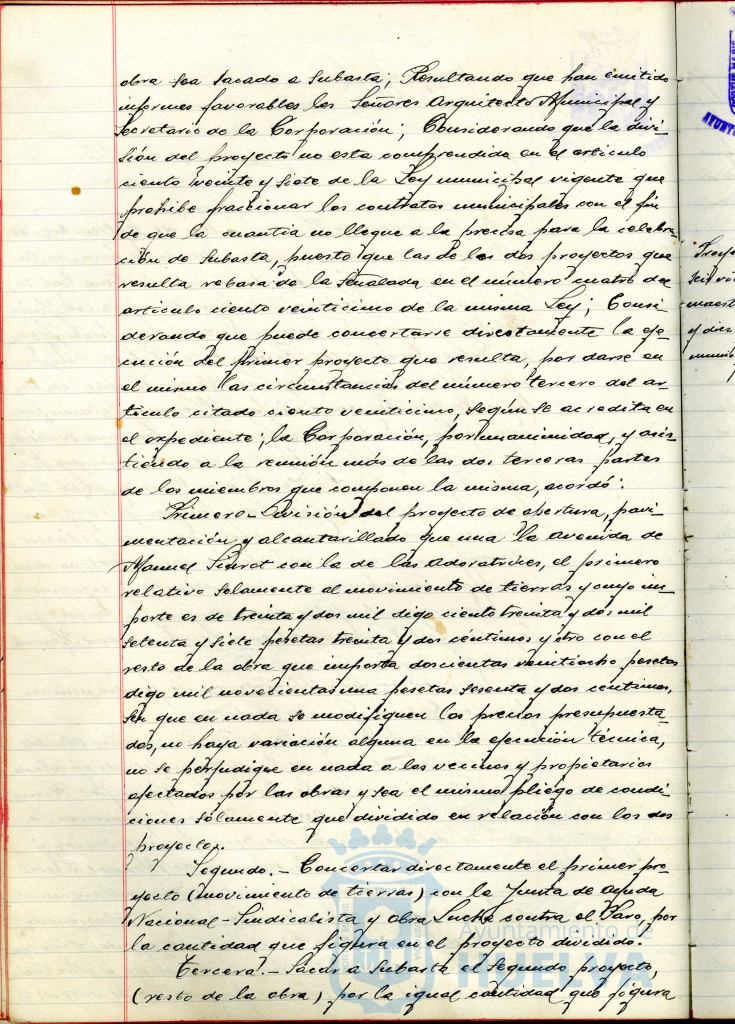 obra sea sacado a Subasta; Resultando que han emitido
informes favorables los Señores Arquitecto Municipal y
Secretario de la Corporación; Considerando que la divi-
sión del proyecto no esta comprendida en el articulo
ciento veinte y siete de la Ley municipal vigente que
prohibe fraccionar los contratos municipales con el fin
de que la cuantia no llegue a la precisa para la celebra-
ción de Subasta, puesto que las de los dos proyectos que
resulta rebasa de la señalada en el número cuatro del
articulo ciento veinticinco de la misma Ley; Consi-
derando que puede concertarse directamente la eje-
cución del primer proyecto que resulta, por darse en
el mismo las circunstancias del número tercero del ar-
ticulo citado ciento veinticinco, según se acredita en
el expediente; la Corporación, por unanimidad, y asis-
tiendo a la reunión más de las dos terceras partes
de los miembros que componen la misma, acordó:
Primero.- División del proyecto de apertura, pavi-
mentación y alcantarillado que una la avenida de
Manuel Siurot con la de las Adoratrices, el primero
relativo solamente al movimiento de tierras y cuyo im-
porte es de treinta y dos mil digo ciento treinta y dos mil
setenta y siete pesetas treinta y dos centimos y otro con el
resto de la obra que importa doscientas veintiocho pesetas
digo mil novecientas una pesetas sesenta y dos centimos,
sin que en nada se modifiquen los precios presupuesta-
dos, no haya variación alguna en la ejecución técnica,
no se perjudique en nada a los vecinos y propietarios
afectados por las obras y sea el mismo pliego de condi-
ciones solamente que dividido en relación con los dos
proyectos.
Segundo.- Concertar directamente el primer pro-
yecto (movimiento de tierras) con la Junta de Ayuda
Nacional-Sindicalista y obra Lucha contra el Paro, por
la cantidad que figura en el proyecto dividido.
Tercera.- Sacar a Subasta el Segundo proyecto,
(resto de la obra) por la igual cantidad que figura
Ayuntamiento de
HUELVA